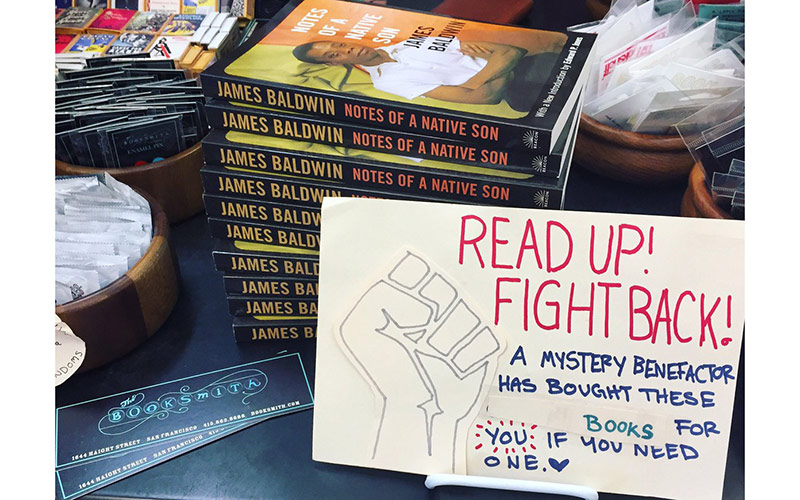 NOTES
OF A NATIVE
SON
JAMES
BALDWIN
With a New Introduction by Edward P. Jones
JAMES BALDWIN NOTES OF A NATIVE SON
BEACON
JAMES BALDWIN NOTES OF A NATIVE SON
BEACON
JAMES BALDWIN NOTES OF A NATIVE SON
JAMES BALDWIN NOTES
JAMES BALDWIN
JAMES BALDWIN
JAMES BALD
JAMES BALD
JAMES BALD
JAMES BALD
READ UP!
FIGHT BACK!
A MYSTERY BENEFACTOR
HAS BOUGHT THESE
BOOKS FOR
YOU IF YOU NEED
ONE.
The
BOOKSMITH
1644 HAIGHT STREET SAN FRANCISCO 415.863.8688 BOOKSMITH.COM
1644 HAIGHT STREET SAN FRANCISCO